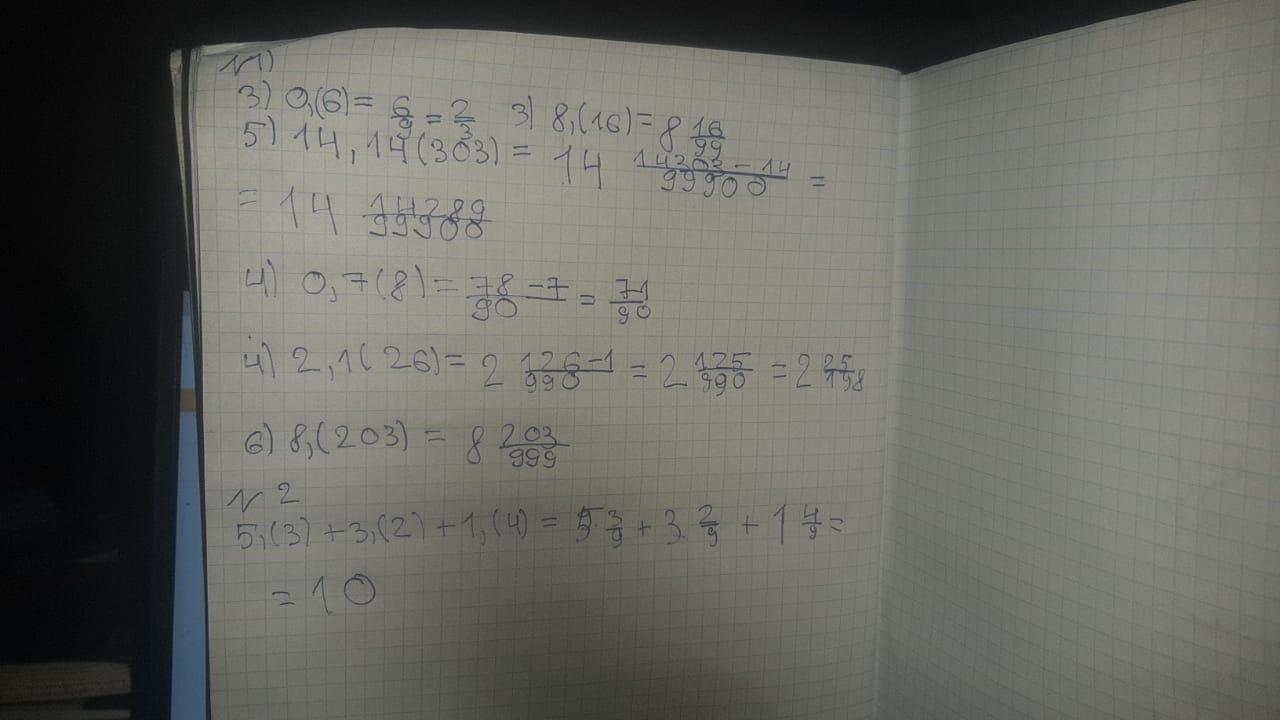 №1)
3) 0,(6) = 6/9 = 2/3 3) 8,(16) = 8 16/99
5) 14,14(303) = 14 14303-14/99900 =
= 14 14289/99900
4) 0,7(8) = 78-7/90 = 71/90
4) 2,1(26) = 2 126-1/990 = 2 125/990 = 2 25/198
6) 8,(203) = 8 203/999
№ 2
5,(3) + 3,(2) + 1,(4) = 5 3/9 + 3 2/9 + 1 4/9 =
= 10